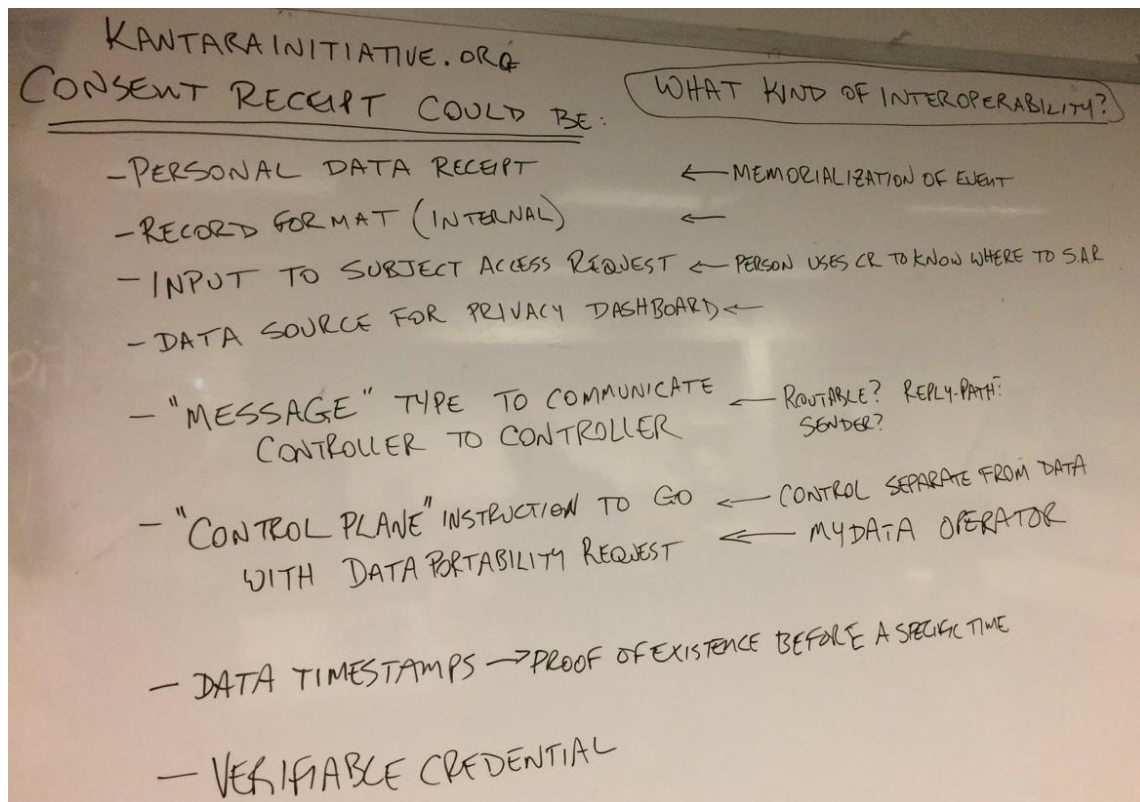 KANTARAINITIATIVE.ORG
CONSENT RECEIPT COULD BE:
WHAT KIND OF INTEROPERABILITY?
- PERSONAL DATA RECEIPT ← MEMORIALIZATION OF EVENT
- RECORD FORMAT (INTERNAL) ←
- INPUT TO SUBJECT ACCESS REQUEST ← PERSON USES CR TO KNOW WHERE TO SAR
- DATA SOURCE FOR PRIVACY DASHBOARD ←
- "MESSAGE" TYPE TO COMMUNICATE ← ROUTABLE? REPLY-PATH?
CONTROLLER TO CONTROLLER SENDER?
- "CONTROL PLANE" INSTRUCTION TO GO ← CONTROL SEPARATE FROM DATA
WITH DATA PORTABILITY REQUEST ← MYDATA OPERATOR
- DATA TIMESTAMPS → PROOF OF EXISTENCE BEFORE A SPECIFIC TIME
- VERIFIABLE CREDENTIAL